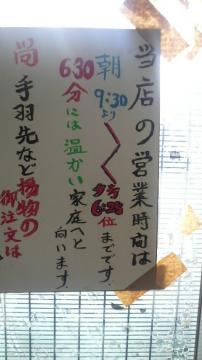 当店の営業時間は
朝9:30より〱〱夕方6:28位までです。
6:30分には温かい家庭へと向います。
尚手羽先など揚物の御注文は